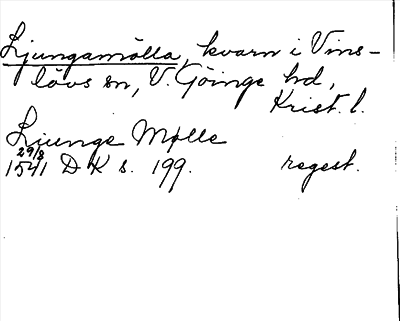 Ljungamölla, kvarn i Vins-
lövs sn, V. Göinge hd,
Krist. l.
Liunge Mølle
29/8
1541 D K s. 199. regest.